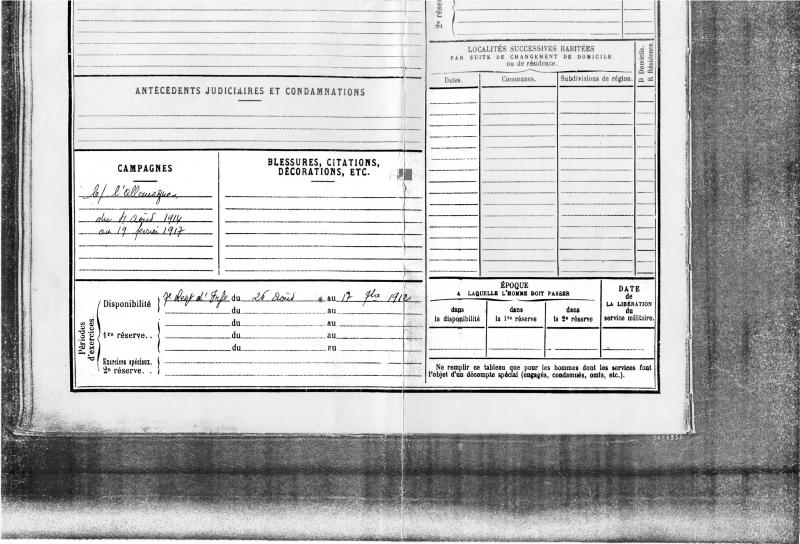 2e réserve
LOCALITÉS SUCCESSIVES HABITÉES
PAR SUITE DE CHANGEMENT DE DOMICILE
ou de résidence.
D Domicile.
R Résidence.
Dates.
Communes.
Subdivisions de région.
ANTÉCÉDENTS JUDICIAIRES ET CONDAMNATIONS
CAMPAGNES
C/ l'Allemagne
du 4 Août 1914
au 19 février 1917
BLESSURES, CITATIONS,
DÉCORATIONS, ETC.
Périodes
d'exercices
Disponibilité
7e Regt d'Infie du 26 Août au 17 7bre 1912
du au
1re réserve. .
du au
du au
Exercices spéciaux.
2e réserve. .
du au
ÉPOQUE
A LAQUELLE L'HOMME DOIT PASSER
dans
la disponibilité
dans
la 1re réserve
dans
la 2e réserve
DATE
de
LA LIBÉRATION
du
service militaire.
Ne remplir ce tableau que pour les hommes dont les services font
l'objet d'un décompte spécial (engagés, condamnés, omis, etc.).